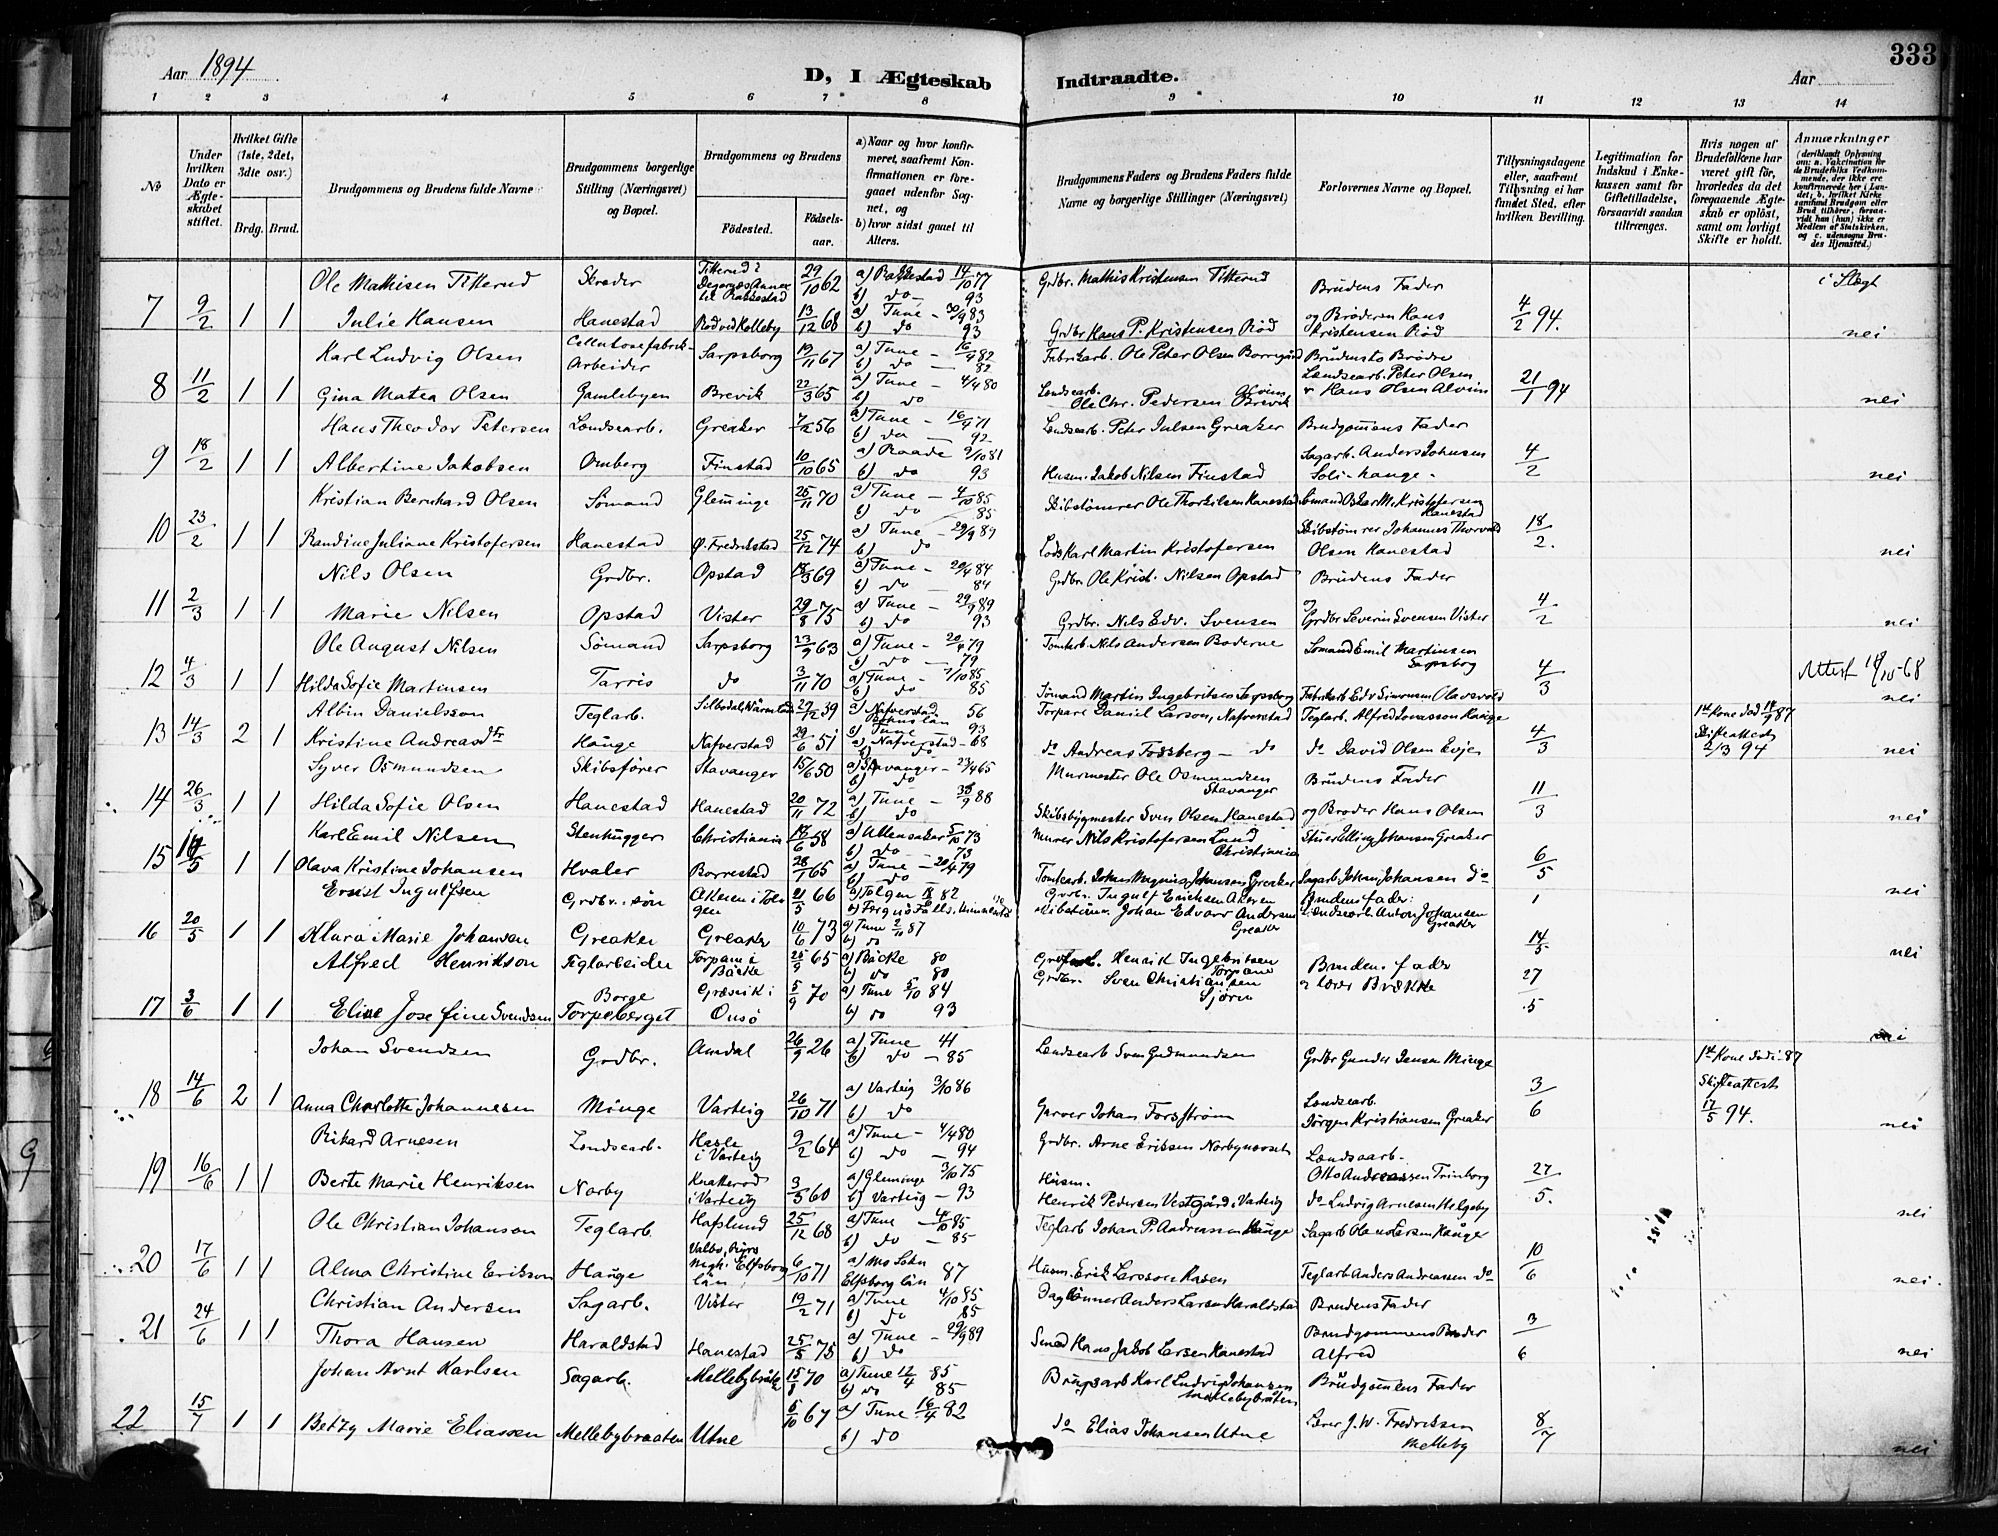 333
Aar 1894
D, I Ægteskab Indtraadte.
Aar
1 2 3 4 5 6 7 8 9 10 11 12 13 14
No
Under hvilken Dato er Ægteskabet stiftet.
Hvilket Gifte (1ste, 2det, 3dte osv.)
Brdg. Brud.
Brudgommens og Brudens fulde Navne
Brudgommens borgerlige Stilling (Næringsvei) og Bopæl.
Brudgommens og Brudens
Fødested. Fødselsaar.
a) Naar og hvor konfirmeret, saafremt Konfirmationen er foregaaet udenfor Sognet, og
b) hvor sidst gaaet til Alters.
Brudgommens Faders og Brudens Faders fulde Navne og borgerlige Stillinger (Næringsvei)
Forlovernes Navne og Bopæl.
Tillysningsdagene eller, saafremt Tillysning ei har fundet Sted, efter hvilken Bevilling.
Legitimation for Indskud i Enkekassen samt for Giftetilladelse, forsaavidt saadan tiltrænges.
Hvis nogen af Brudefolkene har været gift før, hvorledes da det foregaaende Ægteskab er opløst, samt om lovligt Skifte er holdt.
Anmærkninger
(deriblandt Oplysning om: a. Vakcination for de Brudefolks Vedkommende, der ikke ere konfirmerede her i Landet; b. hvilket Kirkesamfund Brudgom eller Brud tilhører, forsaavidt han (hun) ikke er Medlem af Statskirken, og c. udensogns Brudes Hjemsted.)
Ole Mathisen Titterud Skræder Titterud i Degernæs Annex til Rakkestad 29/10 62 a) Rakkestad 14/10 77 b) do 93 Grdbr. Mathis Kristensen Titterud Brudens Fader i Slægt
7 9/2 1 1 Julie Hansen Hanestad Rød ved Kolleby 13/12 68 a) Tune 30/9 83 b) do 93 Grdbr Hans P. Kristensen Rød og Broderen Hans Kristensen Rød 4/2 94. nei
Karl Ludvig Olsen Cellulosefabrik-Arbeider Sarpsborg 19/11 67 a) Tune 16/9 82 b) do 82 Fabrikarb. Ole Peter Olsen Borregård Brudens to Brødre
8 11/2 1 1 Gina Matea Olsen Gamlebyen Brevik 22/3 65 a) Tune 4/4 80 b) do Landsearb. Ole Chr. Pedersen Brevik Landsearb. Peter Olsen & Hans Olsen Alvim 21/1 94 nei
Hans Theodor Petersen Landsearb. Greaker 7/12 56 a) Tune 16/9 71 b) do 92 Landsearb. Peter Julsen Greaker Brudgomens Fader
9 18/2 1 1 Albertine Jakobsen Omberg Finstad 10/10 65 a) Raade 2/10 81 b) do 93 Husm. Jakob Nilsen Finstad Sagarb. Anders Johnsen Soli-hauge 4/2 nei
Kristian Bernhard Olsen Sømand Gleminge 26/11 70 a) Tune 4/10 85 b) do 85 Skibstømrer Ole Thorkilsen Hanestad Sømand Oskar M. Kristofersen Hanestad
10 23/2 1 1 Randine Juliane Kristofersen Hanestad Ø. Fredrikstad 25/12 74 a) Tune 29/9 89 b) do Lods Karl Martin Kristofersen Skibstømrer Johannes Thorvald Olsen Hanestad 18/2. nei
Nils Olsen Grdbr. Opstad 18/3 69 a) Tune 20/4 84 b) do 84 Grdbr Ole Krist. Nilsen Opstad Brudens Fader
11 2/3 1 1 Marie Nilsen Opstad Vister 29/8 75 a) Tune 29/9 89 b) do 93 Grdbr. Nils Edv. Svensen og Grdbr Severin Svensen Vister 4/2 nei
Ole August Nilsen Sømand Sarpsborg 23/9 63 a) Tune 20/4 79 b) do 79 Tomtarb. Nils Andersen Boderne Sømand Emil Martinsen Sarpsborg
12 4/3 1 1 Hilda Sofie Martinsen Tarris do 3/11 70 a) Tune 4/10 85 b) do 85 Sømand Martin Ingebritsen Sarpsborg Fabrikarb Edv Simonsen Olavsvold 4/3 nei
Albin Danielsson Teglarb. Silbodal, Wärmland 29/12 39 a) Nafverstad Bohuslän 56 b) Tune 93 Torpare Daniel Larson, Nafverstad Teglarb. Alfred Jonasson Hauge 1ste Kone død 87
13 14/3 2 1 Kristine Andreasdtr Hauge Nafverstad 29/6 51 a) Nafverstad 68 b) do do Andreas Fossberg do do David Olsen Evje 4/3 Skifteattest 2/3 94 nei
Syver Osmundsen Skibsfører Stavanger 15/6 50 a) Stavanger 23/4 65 b) do Murmester Ole Osmundsen Stavanger Brudens Fader
14 26/3 1 1 Hilda Sofie Olsen Hanestad Hanestad 20/11 72 a) Tune 88 b) do Skibsbygmester Sven Olsen Hanestad og Broder Hans Olsen 11/3 nei
Karl Emil Nilsen Stenhugger Christiania 18/6 58 a) Ullensaker 5/10 73 b) do 73 Murer Nils Kristofersen Lund Christiania Elling Johansen Greaker
15 1 1 Olava Kristine Johansen Hvaler Borrestad 28/1 65 a) Tune 20/4 79 b) do Tomtearb. Johan Magnus Johansen Greaker Sagarb Johan Johansen do 6/5 nei
Ernst Ingulfsen Grdbr. søn Akeren i Tolgen 21/5 66 a) Tolgen 82 b) Fergus Falls, Minnesota Grdbr. Ingulf Erichsen Akeren Brudens fader: 1
16 20/5 1 1 Klara Marie Johansen Greaker Greaker 10/6 73 a) Tune 2/10 87 b) do Skibstømr. Johan Edvard Andersen Greaker Landsearb. Anton Johansen Greaker 14/5 nei
Alfred Henrikson Teglarbeider Torpane i Bäcke 25/9 65 a) Bäcke 80 b) do 80 Henrik Ingebritsen Torpane Brudens fader
17 3/6 1 1 Elise Josefine Svendsen Borge Torpeberget Græsvik i Onsø 5/9 70 a) Tune 5/10 84 b) do 93 Grdbr. Sven Christiansen & Lærer Brække 27/5 nei
Johan Svendsen Grdbr. Amdal 26/9 26 a) Tune 41 b) do 85 Landsearb Sven Gudmundsen Grdbr Gunder Jensen Minge 1ste Kone død i 87
18 14/6 2 1 Anna Charlotte Johannesen Minge Varteig 26/10 71 a) Varteig 3/10 86 b) do Garver Johan Forsstrøm Landsearb. Jørgen Kristiansen Greaker 3/6 Skifteattest 17/5 94. nei
Rikard Arnesen Landsearb. Hasle i Varteig 9/2 64 a) Tune 4/4 80 b) do 94 Grdbr. Arne Eriksen Norby Landsearb.
19 16/6 1 1 Berte Marie Henriksen Norby Knatterød i Varteig 3/5 60 a) Gleminge 3/10 75 b) Varteig 93 Husm. Henrik Pedersen Vestgård i Varteig Otto Andreassen Trinborg do Ludvig Arnesen Helgeby 27/5. nei
Ole Christian Johanson Teglarb. Hafslund 25/12 68 a) Tune 4/10 85 b) do 85 Teglarb Johan P. Andreassen Hauge Sagarb Ole Larsen Hauge
20 17/6 1 1 Alma Christine Erikson Hauge Elfsborg län 6/10 71 a) Mo Sokn Elfsborg län 87 Husm. Erik Larsson Rasen Teglarb Anders Andreassen do 10/6 nei.
Christian Andersen Sagarb. Vister 19/2 71 a) Tune 4/10 85 b) do 85 Daglønner Anders Larsen Haraldstad Brudens Fader
21 24/6 1 1 Thora Hansen Haraldstad Hanestad 25/5 75 a) Tune 29/9 89 b) do Smed Hans Jakob Larsen Hanestad Brudgommens Broder Alfred 3/6 nei
Johan Arnt Karlsen Sagarb. Mellebybråte 15/8 70 a) Tune 12/4 85 b) do 85 Brugsarb Karl Ludvig Johansen Mellebybråten Brudgomens Fader
22 15/7 1 1 Betzy Marie Eliassen Mellebybraaten Utne 5/10 67 a) Tune 16/4 82 b) do do Elias Johansen Utne Lærer J. W. Fredriksen Melleby 8/7 nei